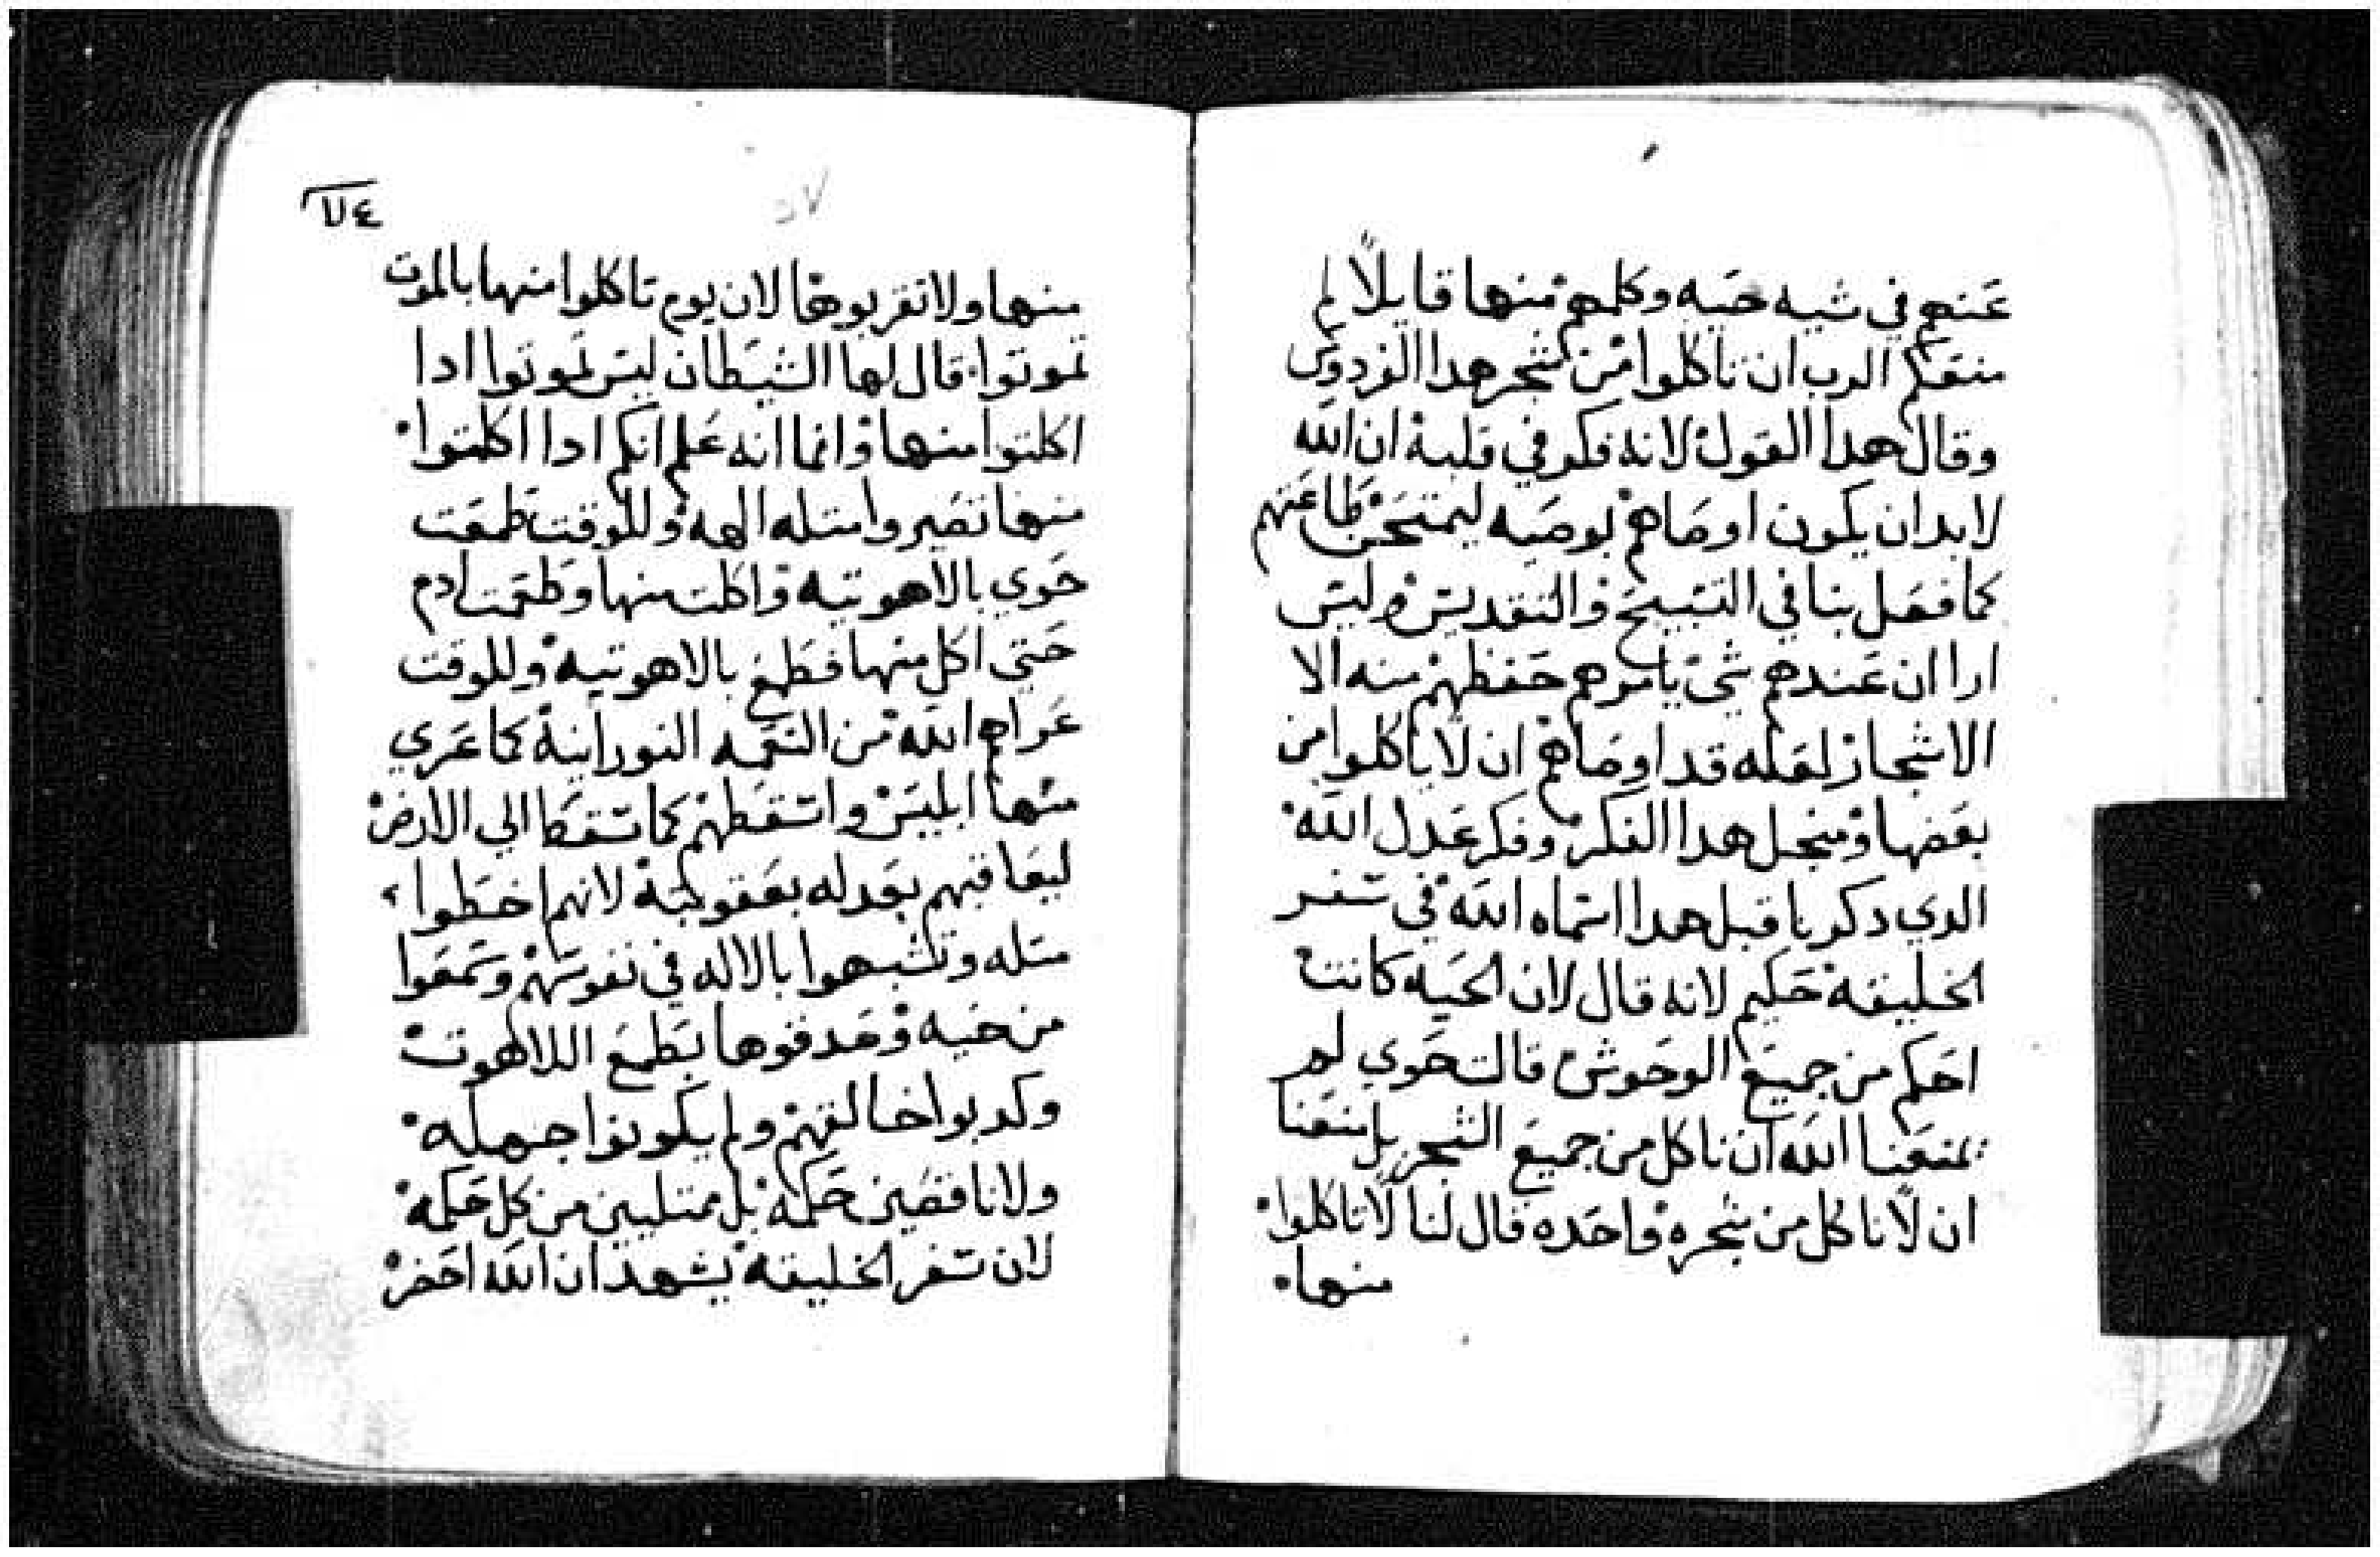 عنهم في شبه حيه وكلمهم منها قايلاً لم
منعكم الرب ان تاكلوا من شجر هدا الفردوس
وقال هدا القول لانه فكر في قلبه ان الله
لابد ان يكون اوصاهم بوصيه ليمتحن طاعتهم
كما فعل بنا في التسبيح والتقديس وليس
ارا ان عندهم شي يامرهم حفظهم منه الا
الاشجار لعله قد اوصاهم ان لا ياكلوا من
بعضها ومنجل هدا الفكر وفكر عدل الله
الدي دكرنا قبل هدا اسماه الله في سفر
الخليقه حكيم لانه قال لان الحيه كانت
احكم من جميع الوحوش قالت حوي لم
يمنعنا الله ان ناكل من جميع الشجر بل منعنا
ان لا ناكل من شجره واحده قال لنا لا تاكلوا
منها
٧٤
منها ولا تقربوها لان يوم تاكلوا منها بالموت
تموتوا قال لها الشيطان ليس تموتوا ادا
اكلتوا منها وانما انه علم انكم ادا اكلتوا
منها تصيروا متله الهه وللوقت طمعت
حوي بالاهوتيه واكلت منها وطعمت ادم
حتي اكل منها فطمع بالاهوتيه وللوقت
عراهم الله من النعمه النورانية كما عري
منها ابليس واسقطهم كما سقط الي الارض
ليعاقبهم بعدله بعقوبته لانهم اخطوا
متله وتشبهوا بالاله في نفوسهم وسمعوا
من حيه وصدقوها بطمع اللاهوت
وكدبوا خالقهم ولم يكونوا جهله
ولا ناقصين حكمه بل ممتليين من كل حكمه
لان سفر الخليقه يشهد ان الله احضر